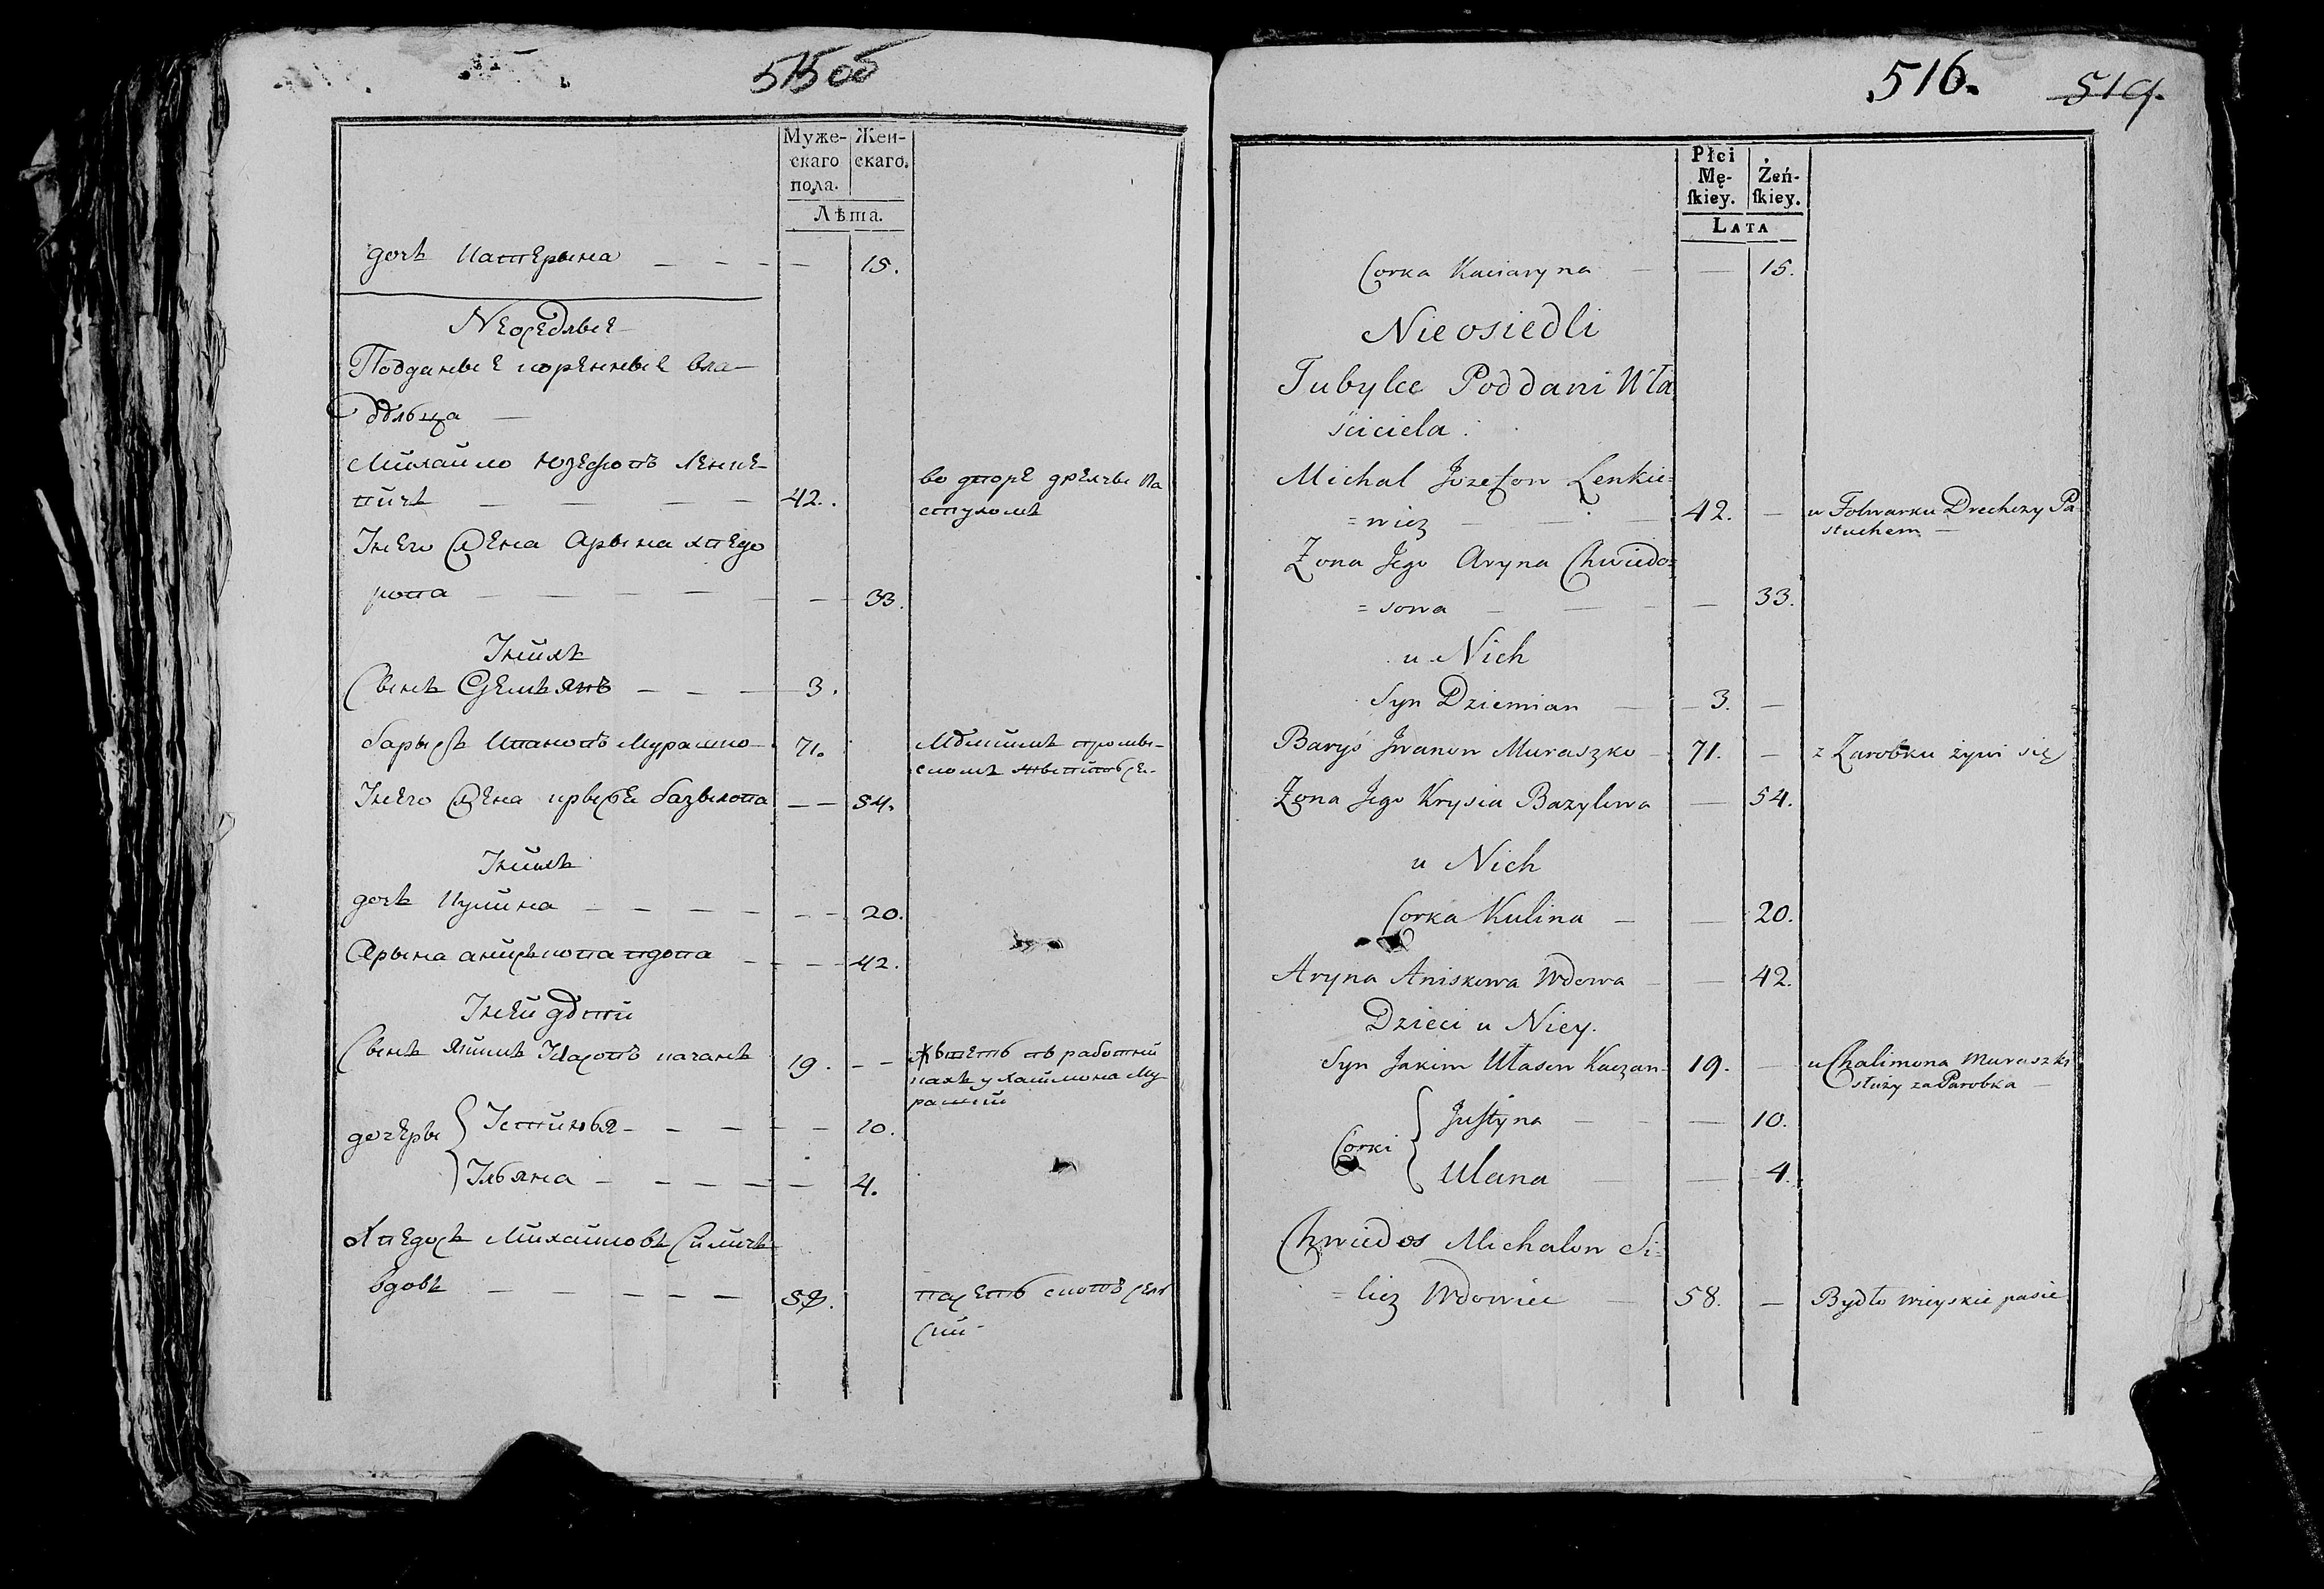 515 об
Муже-
скаго
пола.
Жен-
скаго.
Лѣта.
дочь Катерына — — — — 15.
Неоседлые
Подданные коренные вла-
дѣльца —
Михайло Юзефовъ Ленке-
вичъ — — — — 42.
во дворе дрехчы па
стухомъ
У него жена Арына хведо
рова — — — — — — 33.
У нихъ
сынъ Демьянъ — — — 3.
барысъ Ивановъ Мурашко — 71.
мѣлкимъ промы-
сломъ живитьсе-
У него жена крысе базылова — — 54.
У нихъ
дочь Кулина — — — — — — 20.
Арына аниськова вдова — — — 42.
У ней дѣти
сынъ Якимъ Уласовъ качанъ 19. — —
жыветь въ работни
кахъ у халимона Му
рашки
дочеры Устинья — — — — — 10.
Ульяна — — — — — — 4.
Хведосъ Михайловъ Силичъ
вдовъ — — — — — — 58.
пасеть скотъ сель
ский
516. 519.
Płci
Mę-
ſkiey.
Żeń-
ſkiey.
LATA
Corka Kaciaryna — — 15.
Nieosiedli
Tubylce Poddani Wła
ściciela.
Michal Jozefow Lenkie=
=wicz — — — 42. —
w Folwarku Drechczy Pa
stuchem —
Żona Jego Aryna Chwiedo=
=sowa — — — — 33.
u Nich
Syn Dziemian — 3. —
Baryś Jwanow Muraszko — 71. —
z Zarobku żywi się
Żona Jego Krysia Bazylowa — 54.
u Nich
Corka Kulina — — 20.
Aryna Aniskowa Wdowa — — 42.
Dzieci u Niey.
Syn Jakim Ułasow Kaczan 19. —
u Chalimona Muraszki
służy za Parobka —
Córki Juſtyna — — — 10.
Ulana — — 4.
Chwiedos Michalow Si=
=licz Wdowiec — 58. —
Bydło wieyskie pasie